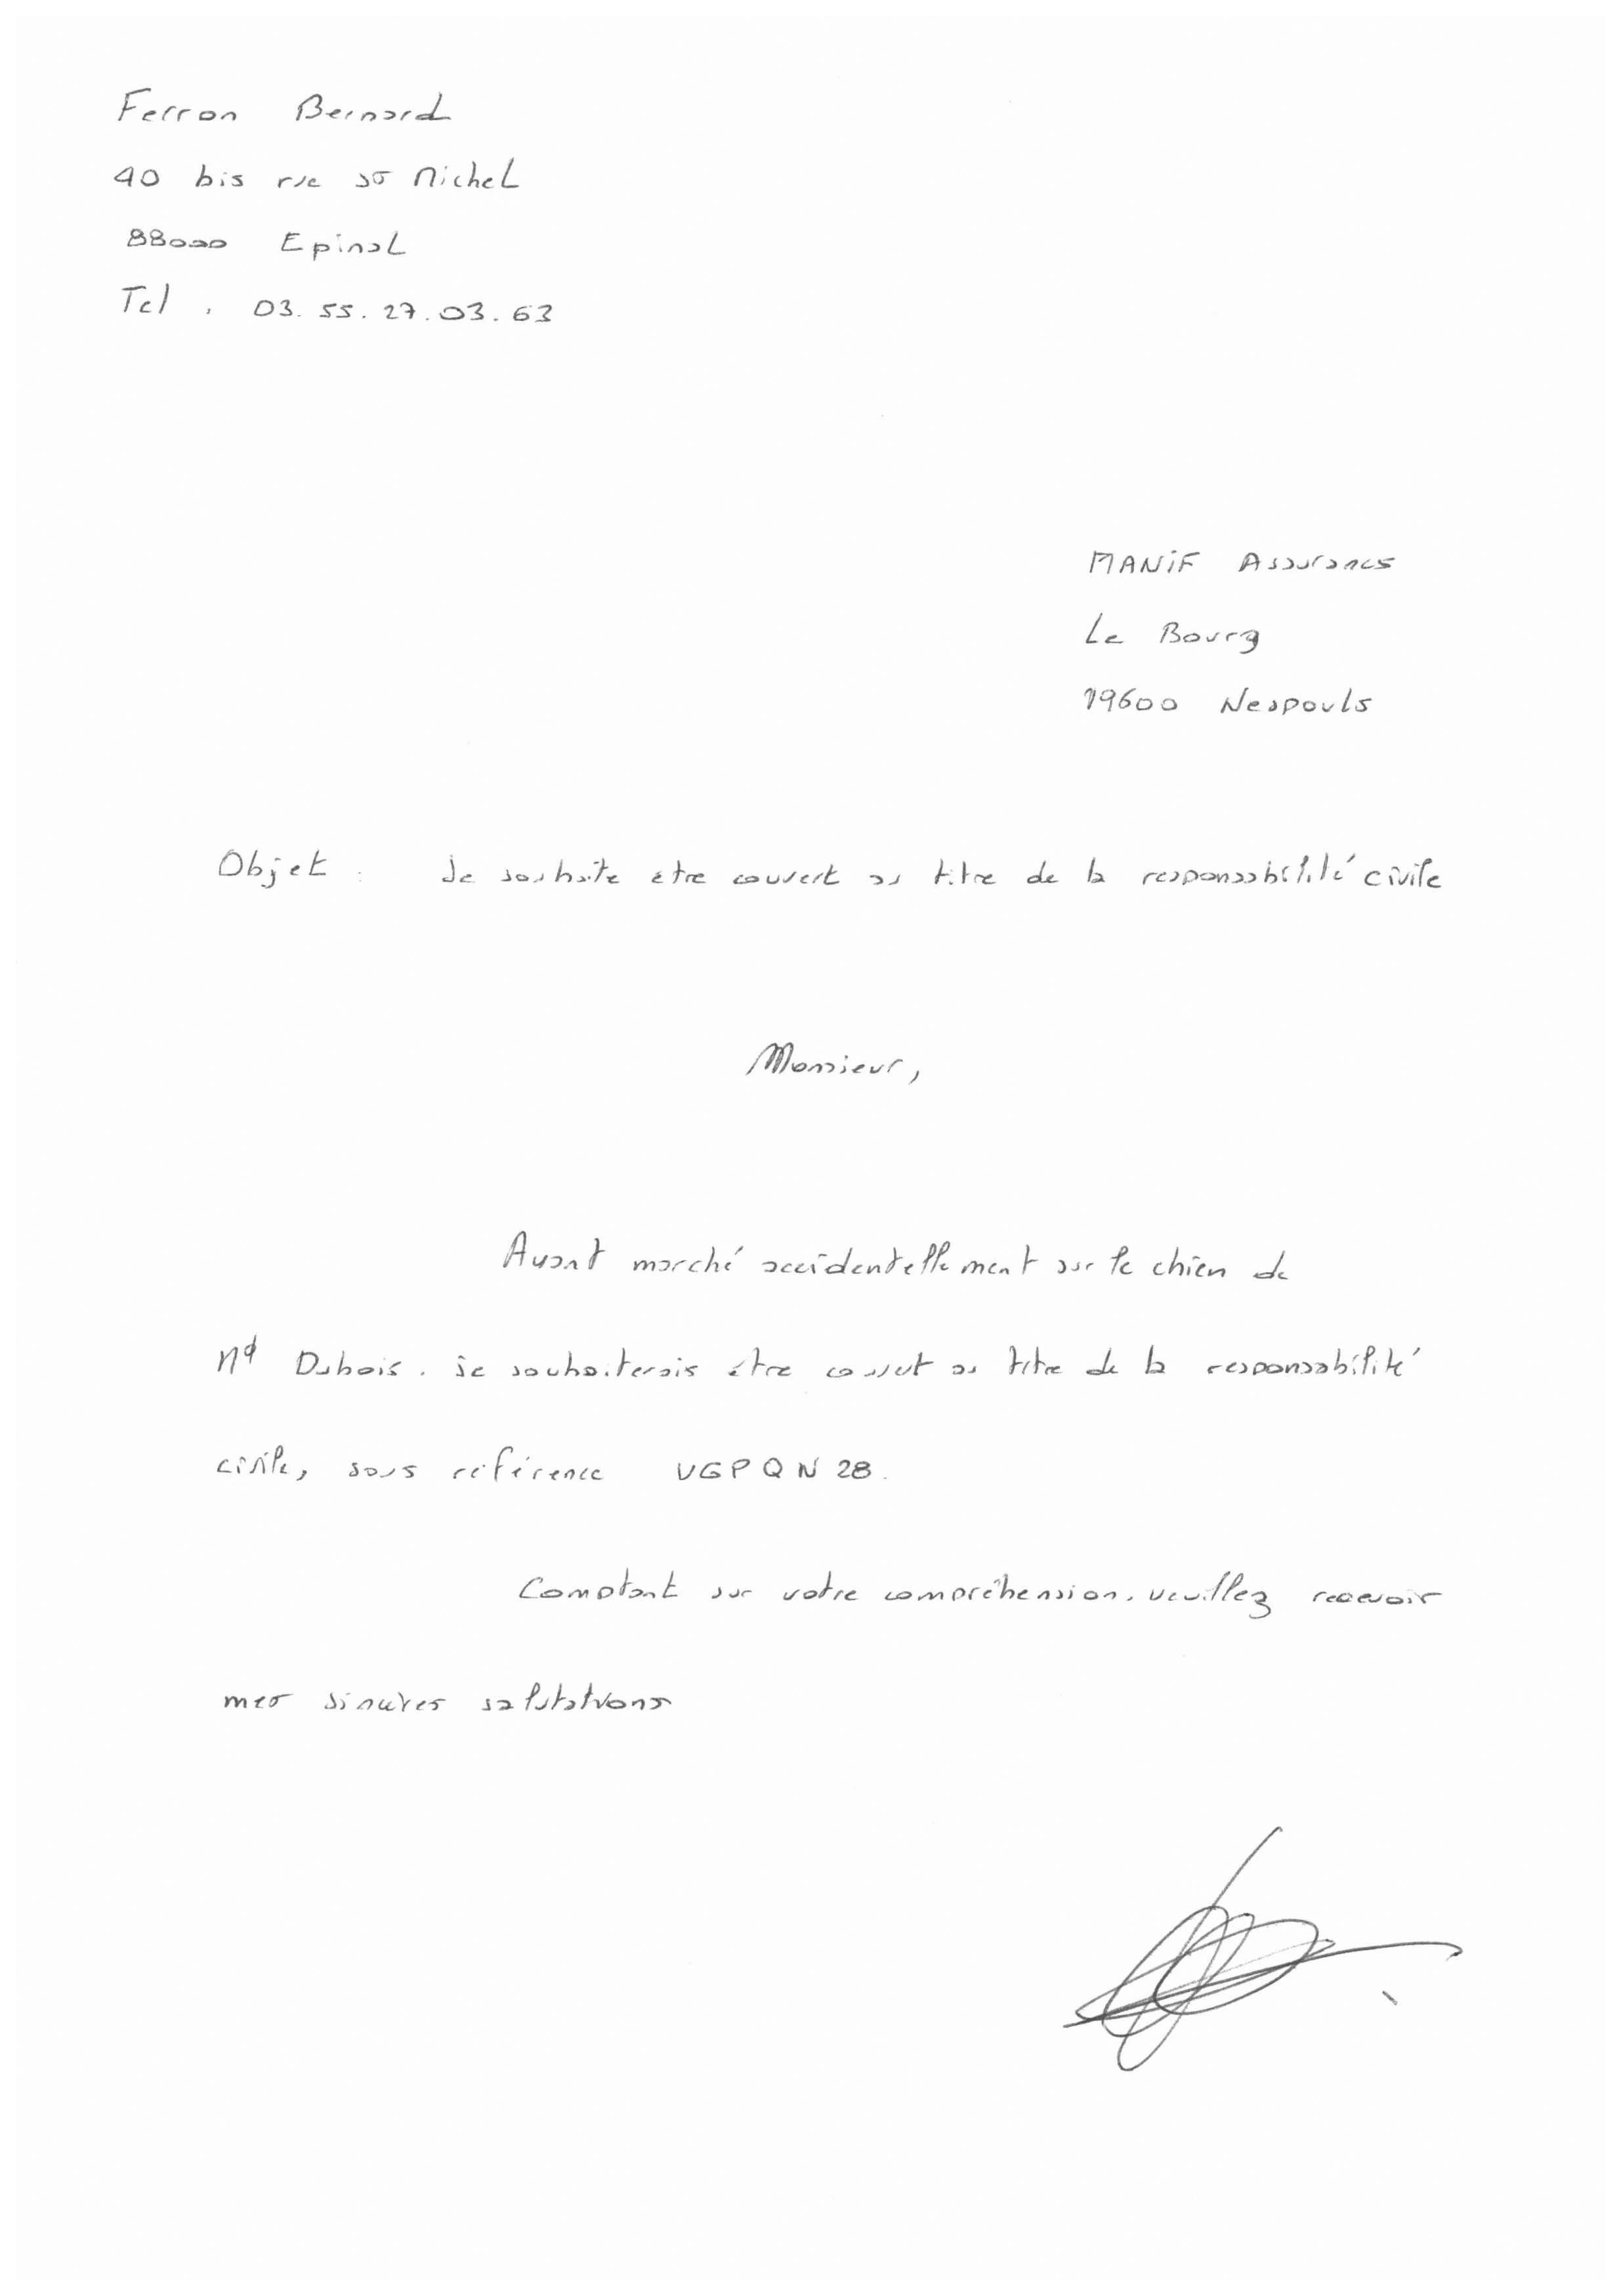 Ferron Bernard
40 bis rue st Michel
88000 Epinal
Tel : 03.55.27.03.63
MANiF Assurances
Le Bourg
19600 Nespouls
Objet : Je souhaite etre couvert au titre de la responsabilité civile
Monsieur,
Ayant marché accidentellement sur le chien de
Md Dubois. je souhaiterais être couvert au titre de la responsabilité
civile, sous référence VGPQN28.
Comptant sur votre compréhension, veuillez recevoir
mes sincères salutations